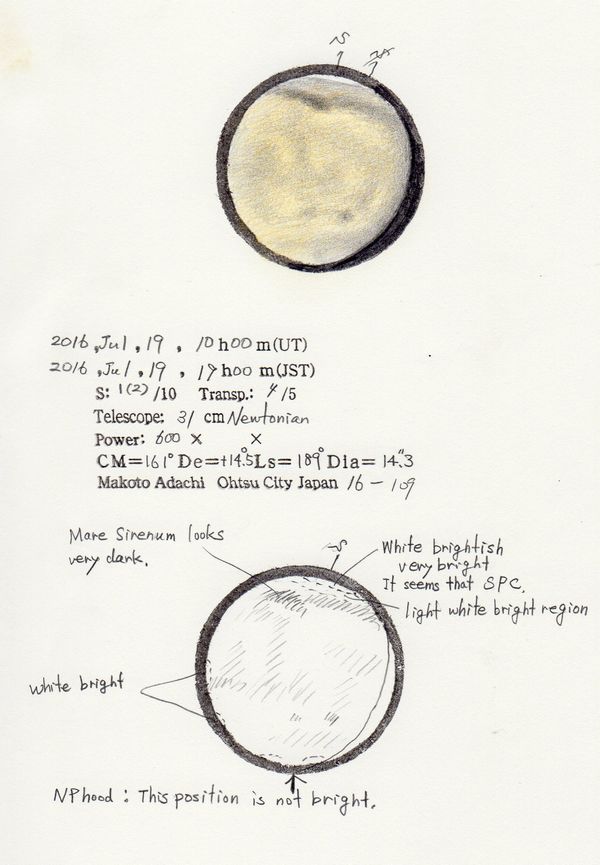 S
2016, Jul, 19, 10h00m(UT)
2016, Jul, 19, 19h00m(JST)
S: 1(2)/10 Transp.: 4/5
Telescope: 31 cm Newtonian
Power: 600 × ×
CM=161° De=+14.°5 Ls=189° Dia= 14."3
Makoto Adachi Ohtsu City Japan 16-109
Mare Sirenum looks
very dark.
S
White brightish
very bright
It seems that SPC.
light white bright region
White bright
NPhood : This position is not bright.